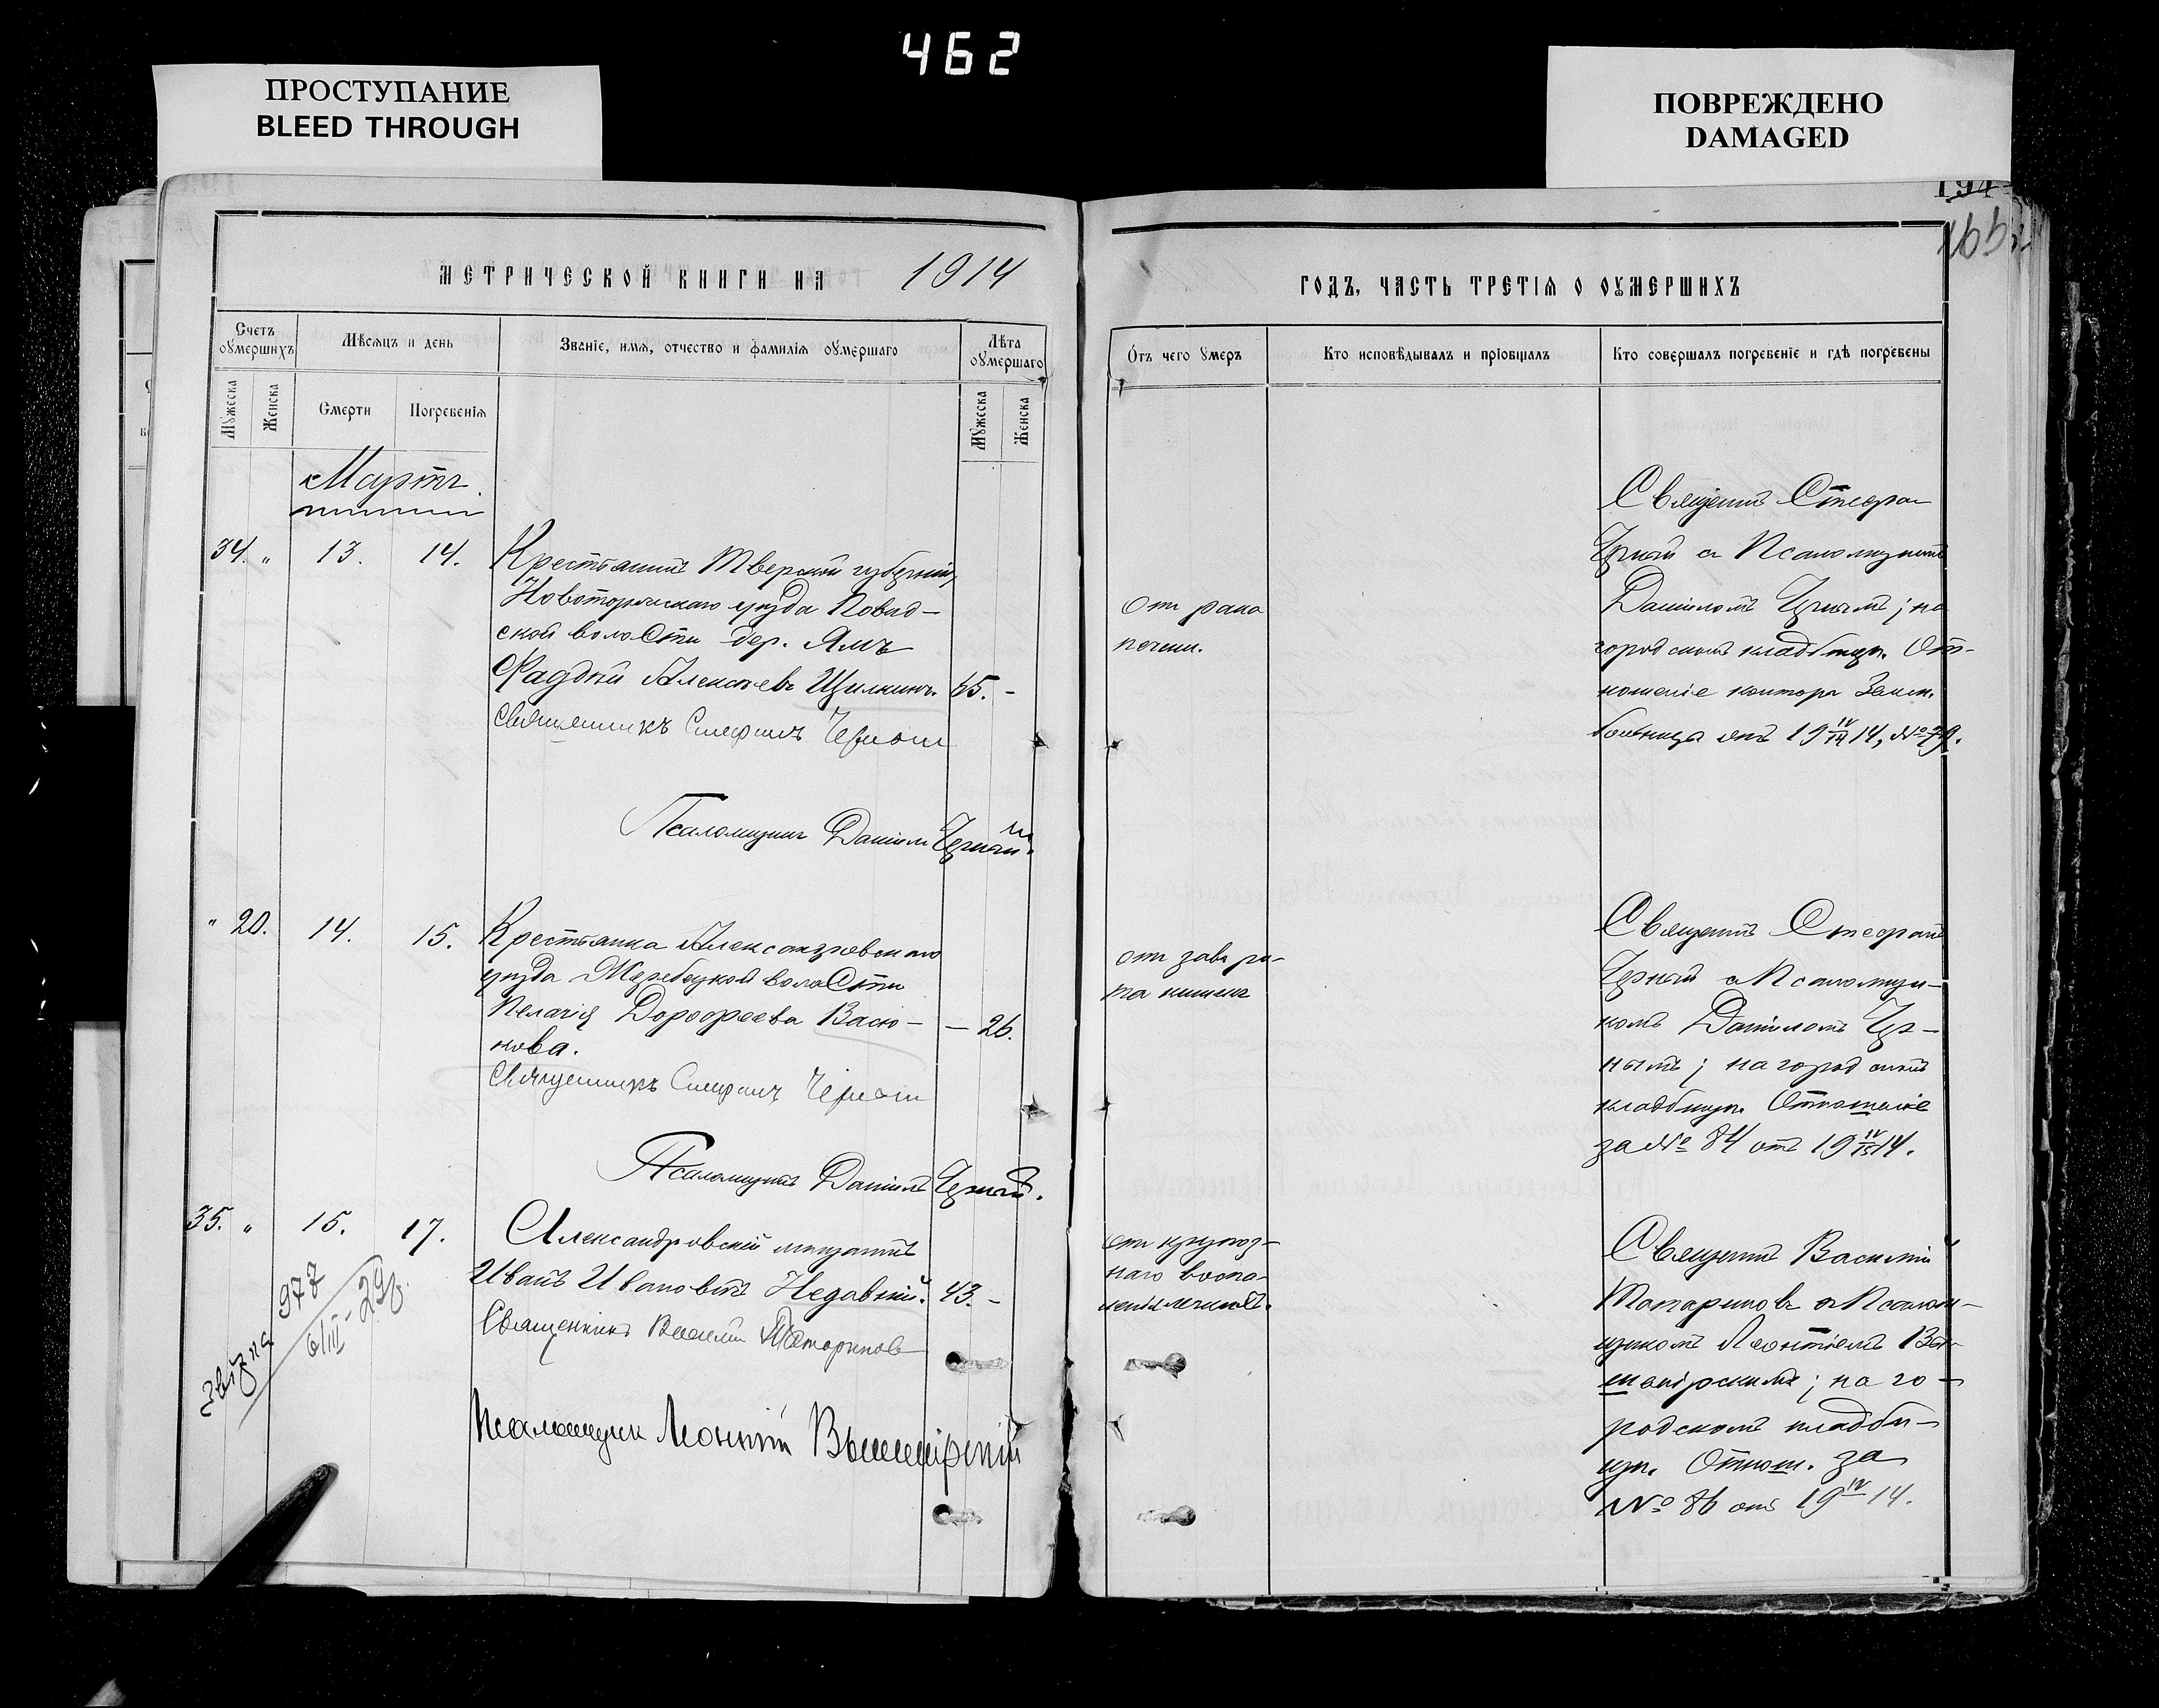 462
ПРОСТУПАНИЕ
BLEED THROUGH
ПОВРЕЖДЕНО
DAMAGED
194
МЕТРИЧЕСКОЙ КНИГИ НА 1914
ГОДЪ, ЧАСТЬ ТРЕТІѦ О ОУМЕРШИХЪ
Счетъ оумершихъ
Мѣсѧцъ и день
Званіе, имѧ, отчество и фамилїѧ оумершаго
Лѣта оумершаго
Мꙋжеска
Женска
Смерти
Погребенїѧ
Мꙋжеска
Женска
Отъ чего ꙋмеръ
Кто исповѣдывалъ и прїобщалъ
Кто совершалъ погребенїе и гдѣ погребены
Мартъ
34. " 13. 14.
Крестьянинъ Тверской губерніи,
Новоторжскаго уѣзда Повад-
ской волости дер. Ямъ
Фаддѣй Алексѣевъ Щилкинъ. 65. -
Священникъ Стефанъ Черный
Псаломщикъ Даніилъ Черный.
Отъ рака
печени.
Священъ Стефанъ
Черный съ Псаломщикомъ
Даніиломъ Чернымъ; на
городскомъ кладбищѣ. От-
ношеніе конторы Земск.
больницы отъ 19 IV/14 14, № 79.
" 20. 14. 15.
Крестьянка Александровскаго
уѣзда Жеребецкой волости
Пелагія Дорофеева Васю-
кова. - 26.
Священникъ Стефанъ Черный
Псаломщикъ Даніилъ Черный.
отъ заворо-
та кишекъ
Священъ Стефанъ
Черный съ Псаломщи-
комъ Даніиломъ Чер-
нымъ; на городскомъ
кладбищѣ. Отношеніе
за № 84 отъ 19 IV/15 14.
35. " 15. 17.
Александровскій мѣщанинъ
Иванъ Ивановичъ Недавній. 43. -
Священникъ Василій Татариновъ
Псаломщик Леонтій Вышемірскій
977
отъ крупоз-
наго воспа-
ленія легкихъ.
Священъ Василій
Татариновъ съ Псалом-
щикомъ Леонтіемъ Вы-
шемірскимъ; на го-
родскомъ кладби-
щѣ. Отнош. за
№ 86 отъ 19 IV 14.